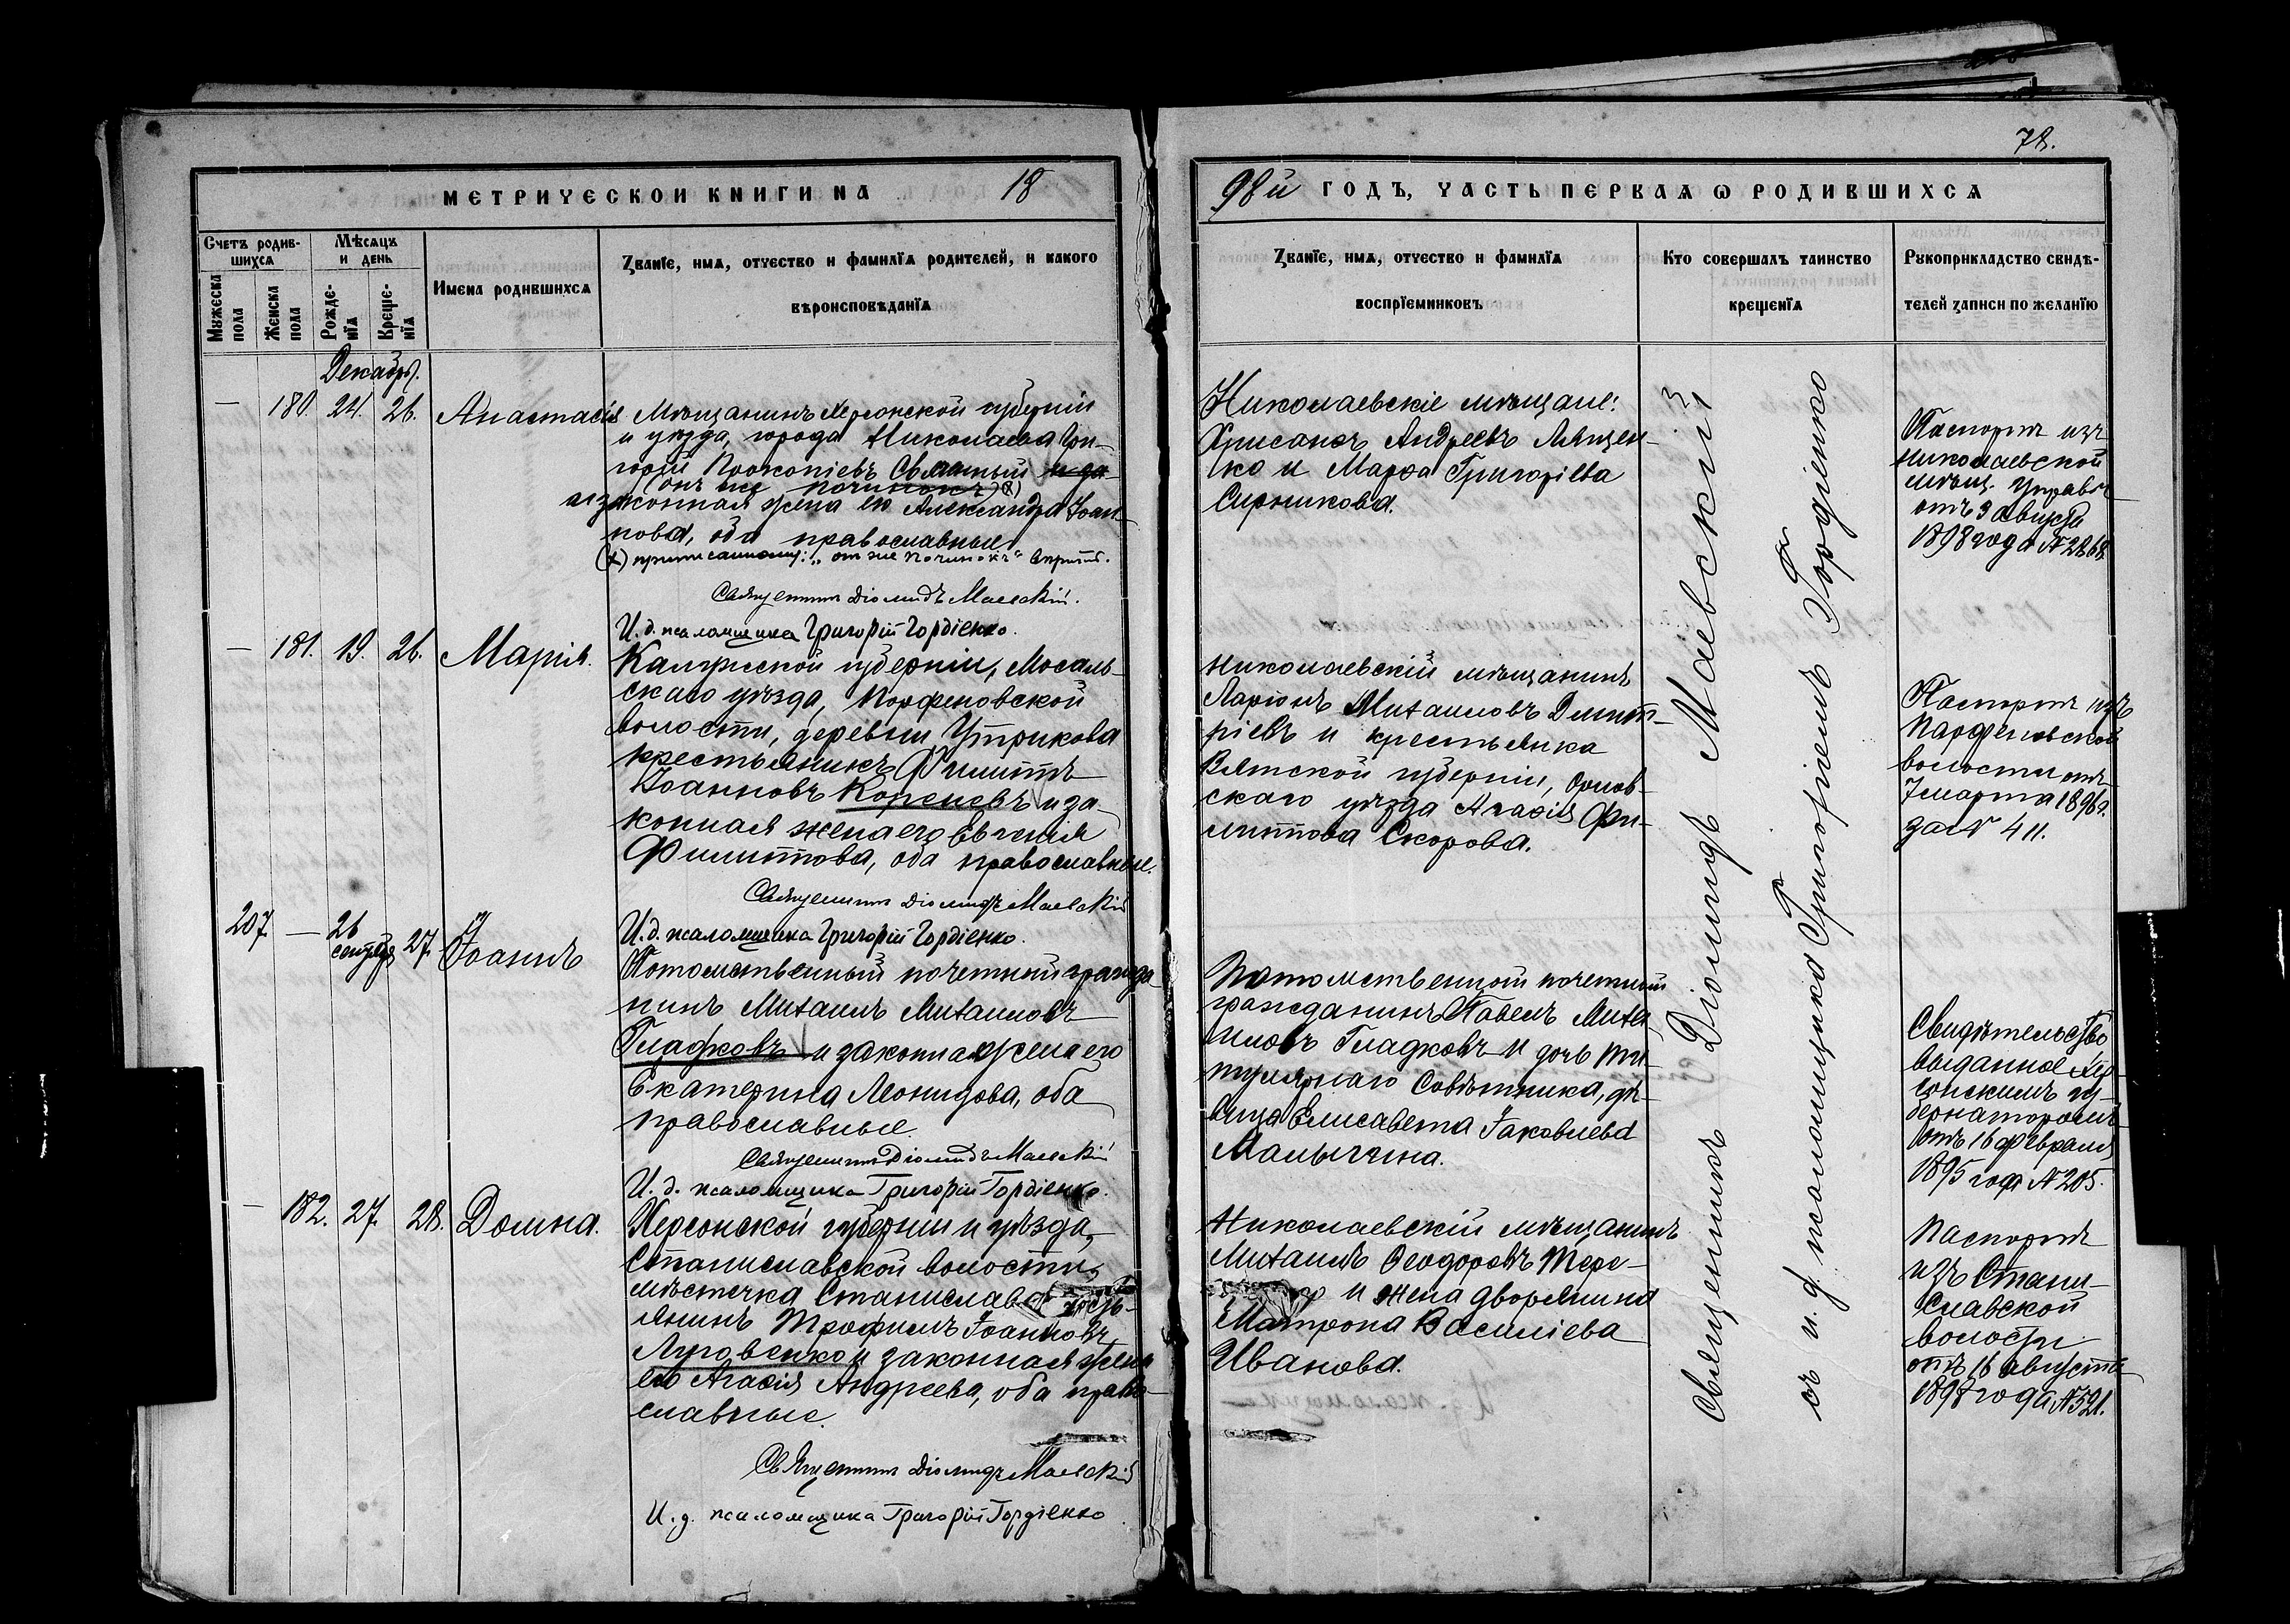 78.
МЕТРИЧЕСКОЙ КНИГИ НА 18
98й ГОДЪ, ЧАСТЬ ПЕРВАЯ Ѡ РОДИВШИХСЯ
Счетъ родив-
шихся
Мужеска пола
Женска пола
Мѣсяцъ
и день
Рожде-
нїя
Креще-
нїя
Имена родившихся
Званїе, имя, отчество и фамилїя родителей, и какого
вѣроисповѣданїя
Званїе, имя, отчество и фамилїя
воспрїемниковъ
Кто совершалъ таинство
крещенїя
Рукоприкладство свидѣ-
телей записи по желанїю
Декабрь.
— 180. 24. 26. Анастасія
Мѣщанинъ Херсонской губерніи
и уѣзда, города Николаева Гри-
горій Прокопіевъ и за-
(онъ же Починокъ) (х)
законная жена его Александра Іоан-
нова, оба православные.
(х) приписанному: „онъ же Починокъ"
Священникъ Діомидъ Маевскій.
И. д. псаломщика Григорій Гордіенко.
Николаевскіе мѣщане:
Хрисанѳъ Андреевъ Лящен-
ко и Марѳа Григоріева
Сирникова.
Паспортъ изъ
Николаевской
мѣщ. управы
отъ 3 августа
1898 года № 2868.
— 181. 19. 26. Марія.
Калужской губерніи, Мосаль-
скаго уѣзда, Порфеновской
волости, деревни Утрикова
крестьянинъ Филиппъ
Іоанновъ Кореневъ и за-
конная жена его Евгенія
Филиппова, оба православные.
Священникъ Діомидъ Маевскій
И. д. псаломщика Григорій Гордіенко.
Николаевскій мѣщанинъ
Ларіонъ Михаиловъ Димит-
ріевъ и крестьянка
Вятской губерніи, Орлов-
скаго уѣзда Агаѳія Фи-
липпова Скорова.
Паспортъ изъ
Парфеновской
волости отъ
7 марта 1896 г.
за № 411.
207 — 26 сентября 27. Іоаннъ
Потомственный почетный гражда-
нинъ Михаилъ Михаиловъ
Гладковъ и законная жена его
Екатерина Леонидова, оба
православные.
Священникъ Діомидъ Маевскій
И. д. псаломщика Григорій Гордіенко.
Потомственный почетный
гражданинъ Павелъ Миха-
иловъ Гладковъ и дочь ти-
тулярнаго Совѣтника, дѣ-
вица Елисавета Іаковлева
Малычина.
Свидѣтельство
выданное Хер-
сонскимъ гу-
бернаторомъ
отъ 16 февраля
1895 года № 205.
— 182. 27. 28. Домна.
Херсонской губерніи и уѣзда,
Станиславской волости,
мѣстечка Станислава кресть-
янинъ Трофимъ Іоанновъ
Луговенко и законная жена
его Агаѳія Андреева, оба право-
славные.
Священникъ Діомидъ Маевскій
И. д. псаломщика Григорій Гордіенко
Николаевскій мѣщанинъ
Михаилъ Ѳеодоровъ Тере-
и жена дворянина
Матрона Василіева
Иванова.
Паспортъ
изъ Стани-
славской
волости
отъ 16 августа
1898 года № 521.
Священникъ Діомидъ Маевскій
съ и. д. псаломщика Григоріемъ Гордіенко